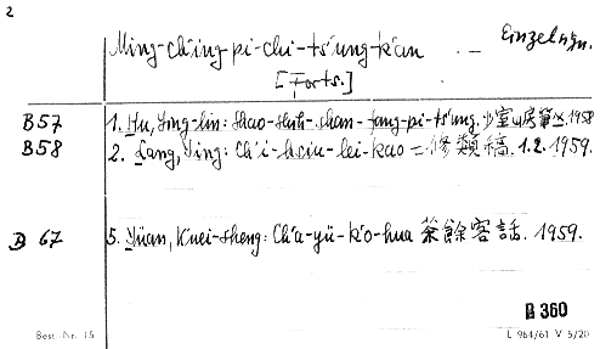 2
Ming-ch'ing pi-chi-ts'ung-k'an . — Einzelsgn.
[Forts.]
B57 1. Hu, Ying-lin: Shao-shih-shan-fang-pi-ts'ung. 少室山房筆丛. 1958
B58 2. Lang, Ying: Ch'i-hsiu-lei-kao 七修類稿. 1.2. 1959.
B 67 5. Yüan, K'uei-sheng: Ch'a-yü-k'o-hua 茶餘客話. 1959.
B 360
Best.-Nr. 15 L 964/61 V 5/20